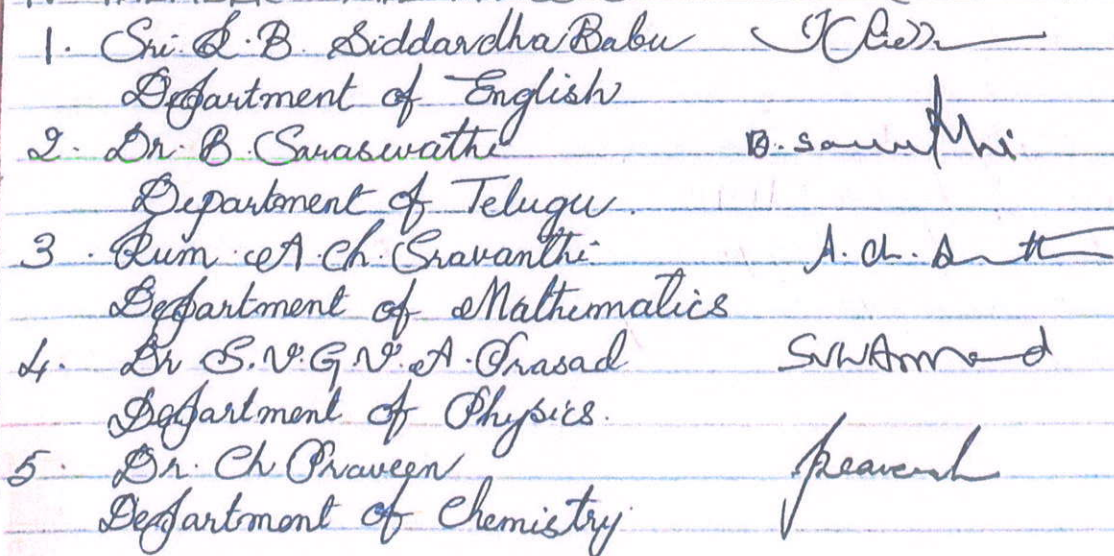 1. Sri. L. B. Siddardha Babu
Department of English
2. Dr. B. Saraswathi B. Saraswathi
Department of Telugu.
3. Kum. A. Ch. Sravanthi A. Ch.
Department of Mathematics
4. Dr S.V.G.V.A. Prasad
Department of Physics.
5. Dr. Ch Praveen Praveen
Department of Chemistry.